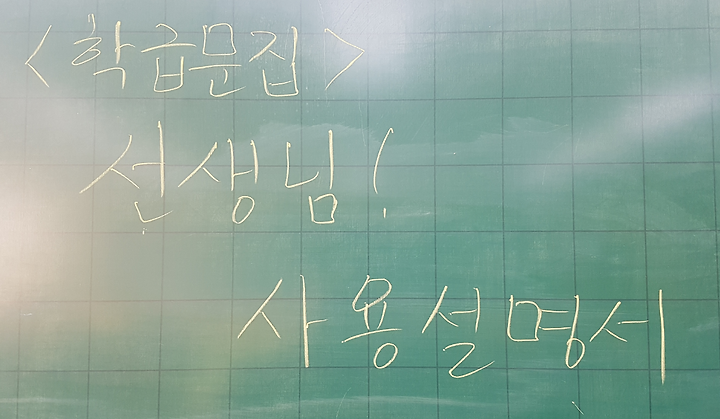 <학급문집>
선생님!
사용설명서